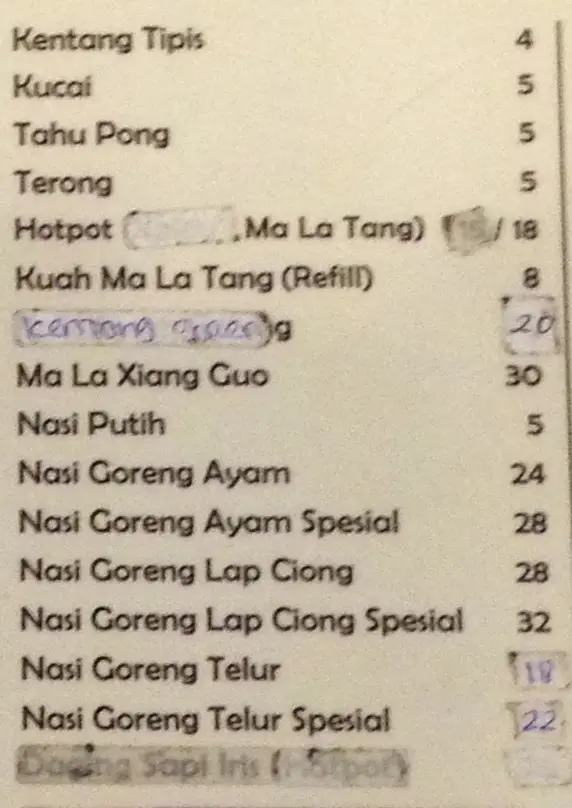 Kentang Tipis 4
Kucai 5
Tahu Pong 5
Terong 5
Hotpot ( ,Ma La Tang) / 18
Kuah Ma La Tang (Refill) 8
kentang goreng 20
Ma La Xiang Guo 30
Nasi Putih 5
Nasi Goreng Ayam 24
Nasi Goreng Ayam Spesial 28
Nasi Goreng Lap Ciong 28
Nasi Goreng Lap Ciong Spesial 32
Nasi Goreng Telur 18
Nasi Goreng Telur Spesial 22
Daging Sapi Iris (Hotpot)